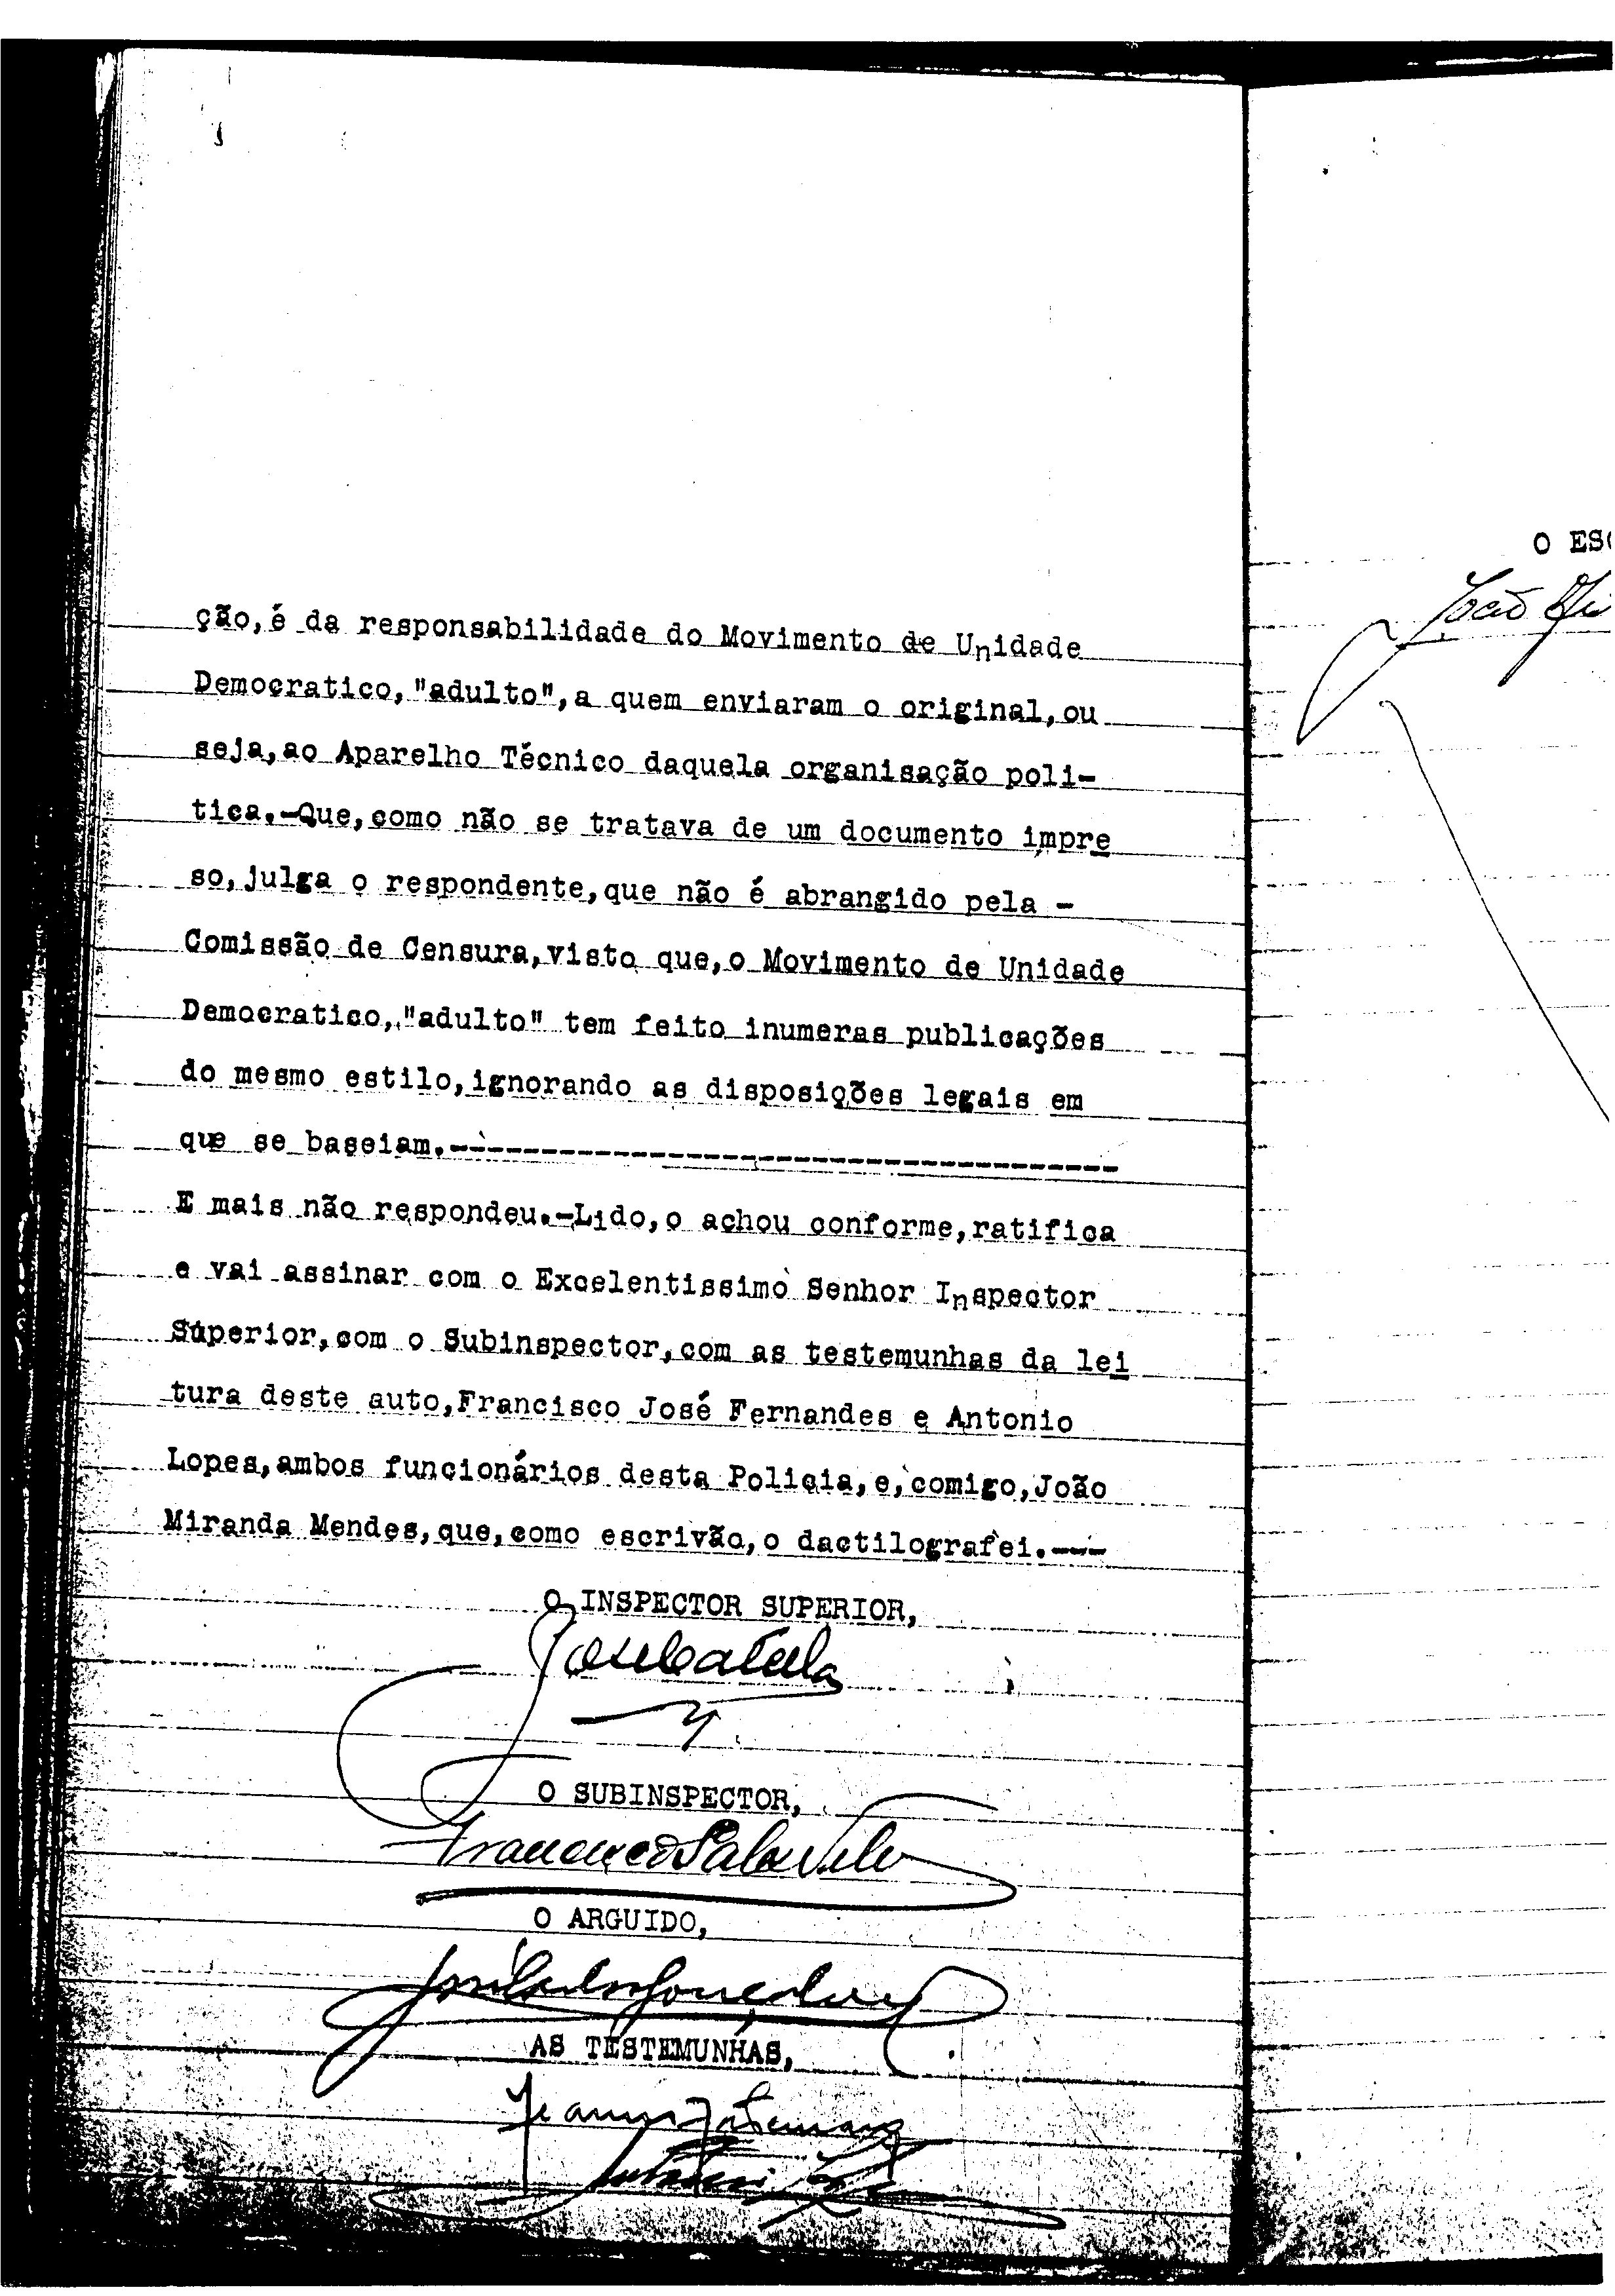 ção,é da responsabilidade do Movimento de Unidade
Democratico,"adulto",a quem enviaram o original,ou
seja,ao Aparelho Técnico daquela organisação poli-
tica.-Que,como não se tratava de um documento impre
so,julga o respondente,que não é abrangido pela -
Comissão de Censura,visto que,o Movimento de Unidade
Democratico,"adulto" tem feito inumeras publicações
do mesmo estilo,ignorando as disposições legais em
que se baseiam.------------------------------------
E mais não respondeu.-Lido,o achou conforme,ratifica
e vai assinar com o Excelentissimo Senhor Inspector
Superior,com o Subinspector,com as testemunhas da lei
tura deste auto,Francisco José Fernandes e Antonio
Lopes,ambos funcionários desta Policia,e,comigo,João
Miranda Mendes,que,como escrivão,o dactilografei.---
O INSPECTOR SUPERIOR,
O SUBINSPECTOR,
O ARGUIDO,
AS TESTEMUNHAS,
O ES
João